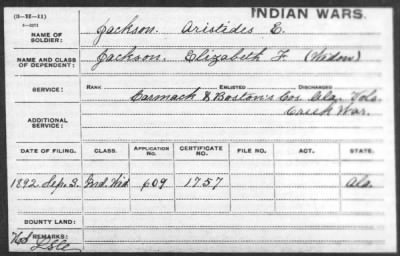 (3-EE-11)
INDIAN WARS.
NAME OF SOLDIER: Jackson. Aristides E.
NAME AND CLASS OF DEPENDENT: Jackson. Elizabeth F. (Widow)
SERVICE: RANK ENLISTED DISCHARGED
Carmack & Boston's Cos. Ala. Vols.
ADDITIONAL SERVICE: Creek War.
DATE OF FILING. CLASS. APPLICATION NO. CERTIFICATE NO. FILE NO. ACT. STATE.
1892 Sep. 3. Ind. Wid. 609 1757 Ala.
BOUNTY LAND:
REMARKS: